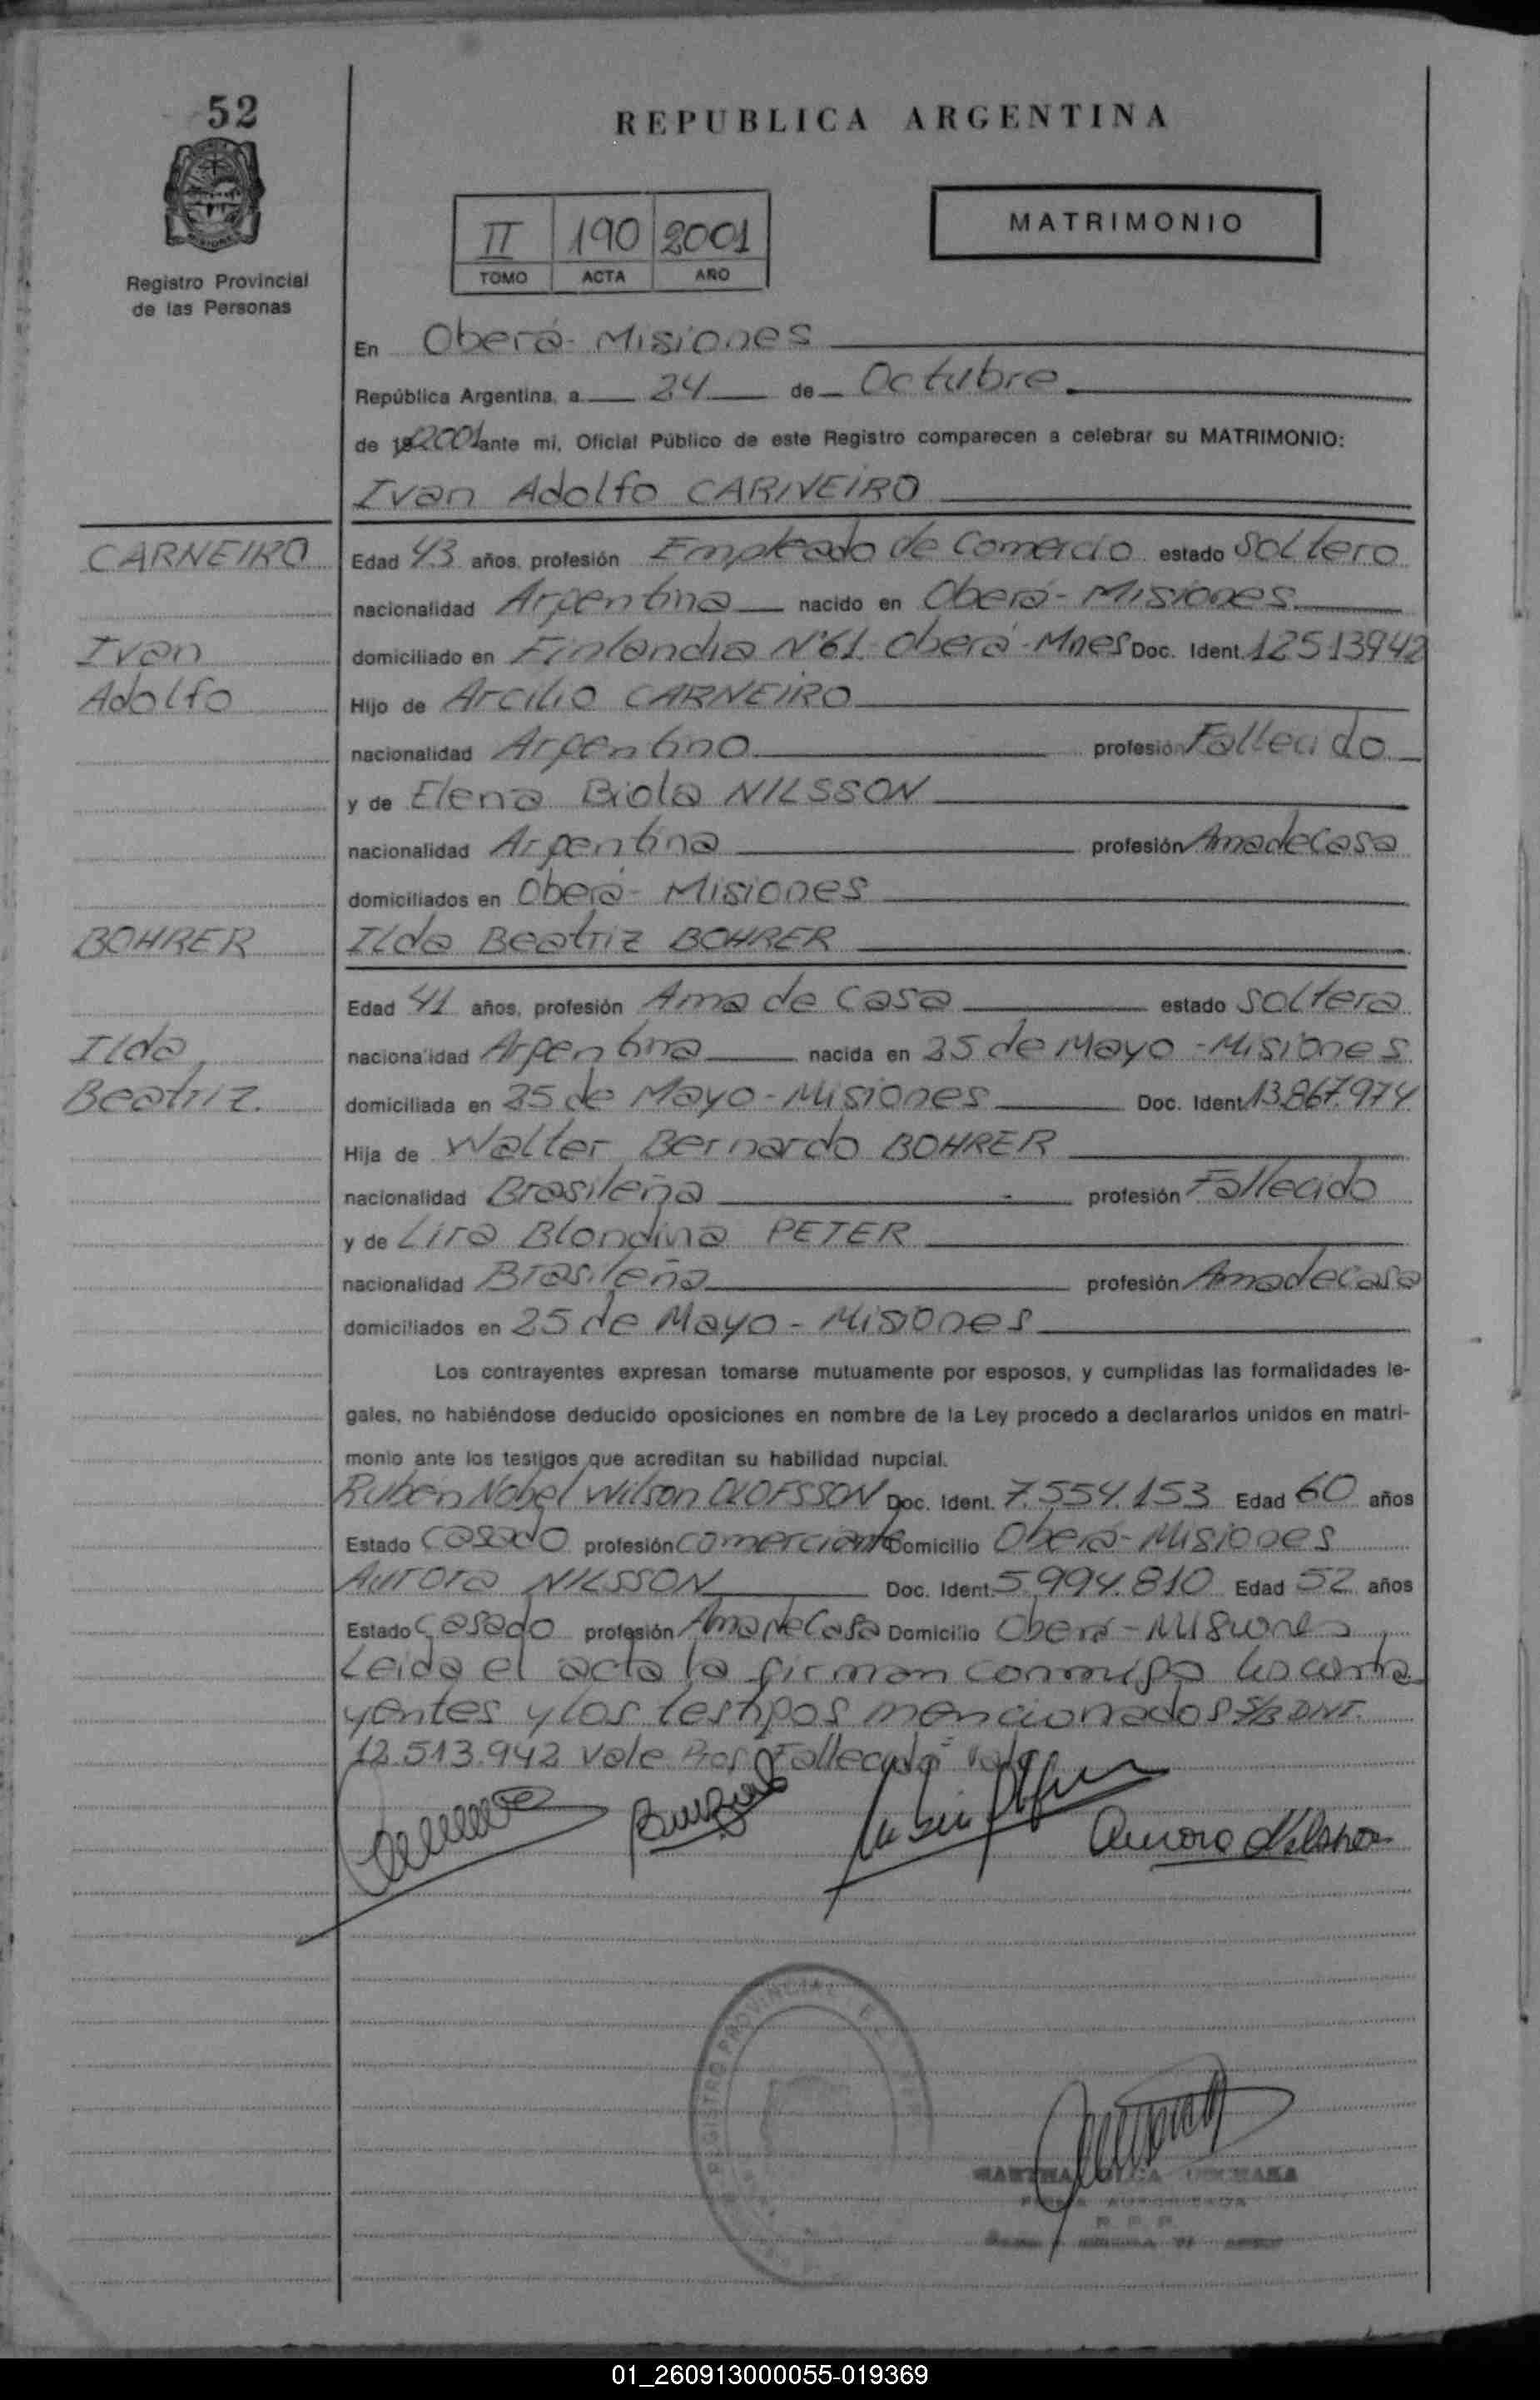 52
REPUBLICA ARGENTINA
II 190 2001
TOMO ACTA AÑO
MATRIMONIO
Registro Provincial
de las Personas
En Oberá - Misiones
República Argentina, a 24 de Octubre
de 19 2001 ante mi, Oficial Público de este Registro comparecen a celebrar su MATRIMONIO:
Ivan Adolfo CARNEIRO
CARNEIRO
Edad 43 años, profesión Empleado de Comercio estado Soltero
nacionalidad Argentina nacido en Oberá - Misiones
Ivan
domiciliado en Finlandia Nº61 - Oberá - Mnes Doc. Ident. 12513942
Adolfo
Hijo de Arcilio CARNEIRO
nacionalidad Argentino profesión Fallecido
y de Elena Biola NILSSON
nacionalidad Argentina profesión Ama de Casa
domiciliados en Oberá - Misiones
BOHRER
Ilda Beatriz BOHRER
Edad 41 años, profesión Ama de Casa estado Soltera
Ilda
nacionalidad Argentina nacida en 25 de Mayo - Misiones
Beatriz
domiciliada en 25 de Mayo - Misiones Doc. Ident. 13.867.974
Hija de Walter Bernardo BOHRER
nacionalidad Brasileña profesión Fallecido
y de Lira Blondina PETER
nacionalidad Brasileña profesión Ama de Casa
domiciliados en 25 de Mayo - Misiones
Los contrayentes expresan tomarse mutuamente por esposos, y cumplidas las formalidades le-
gales, no habiéndose deducido oposiciones en nombre de la Ley procedo a declararlos unidos en matri-
monio ante los testigos que acreditan su habilidad nupcial.
Rubén Nobel Wilson OLOFSSON Doc. Ident. 7.554.153 Edad 60 años
Estado Casado profesión comerciante Domicilio Oberá - Misiones
Aurora NILSSON Doc. Ident. 5.994.810 Edad 52 años
Estado Casado profesión Ama de Casa Domicilio Oberá - Misiones
Leida el acta la firman conmigo los contra
yentes y los testigos mencionados S/B DNI.
12.513.942 Vale Prof. Fallecido Vale
Aurora Nilsson
REGISTRO PROVINCIAL
MARTHA OLGA
01_260913000055-019369